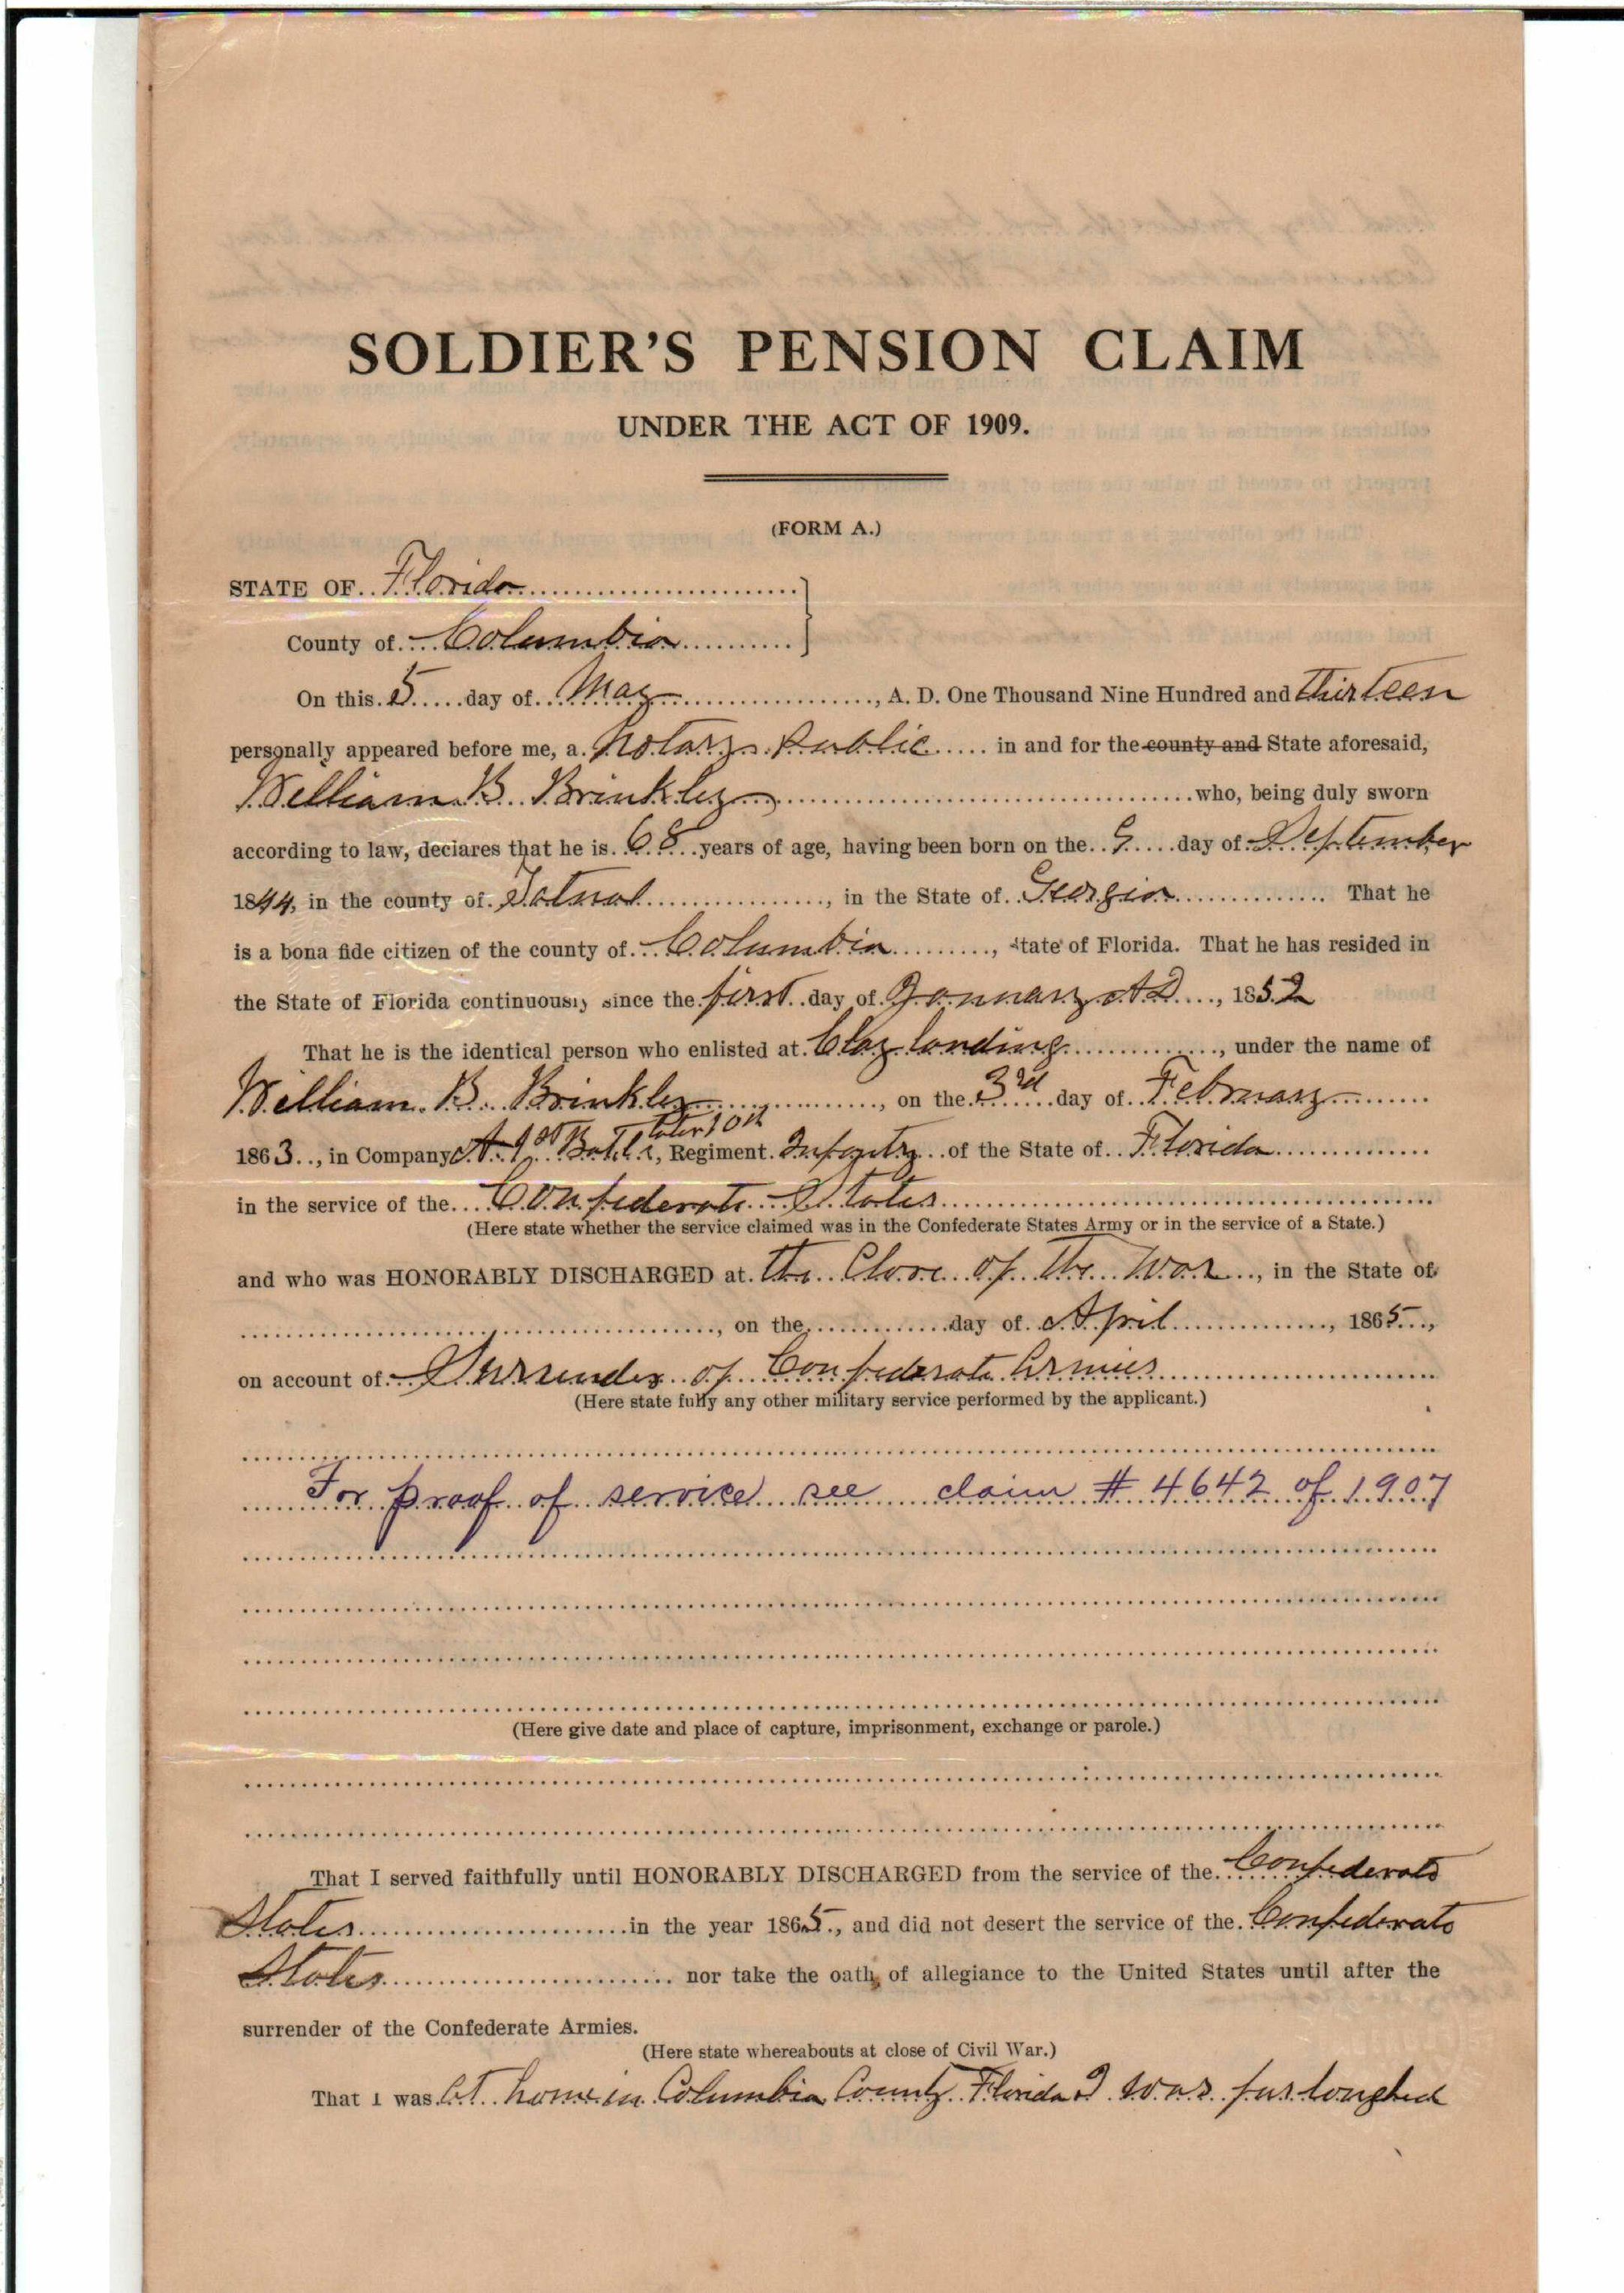 SOLDIER'S PENSION CLAIM
UNDER THE ACT OF 1909.
(FORM A.)
STATE OF Florida
County of Columbia
On this 5 day of May, A. D. One Thousand Nine Hundred and thirteen
personally appeared before me, a Notary Public in and for the county and State aforesaid,
William B. Brinkley who, being duly sworn
according to law, declares that he is 68 years of age, having been born on the 9 day of September
1844, in the county of Tatnal, in the State of Georgia. That he
is a bona fide citizen of the county of Columbia, State of Florida. That he has resided in
the State of Florida continuously since the first day of January AD, 1852
That he is the identical person who enlisted at Clay landing, under the name of
William B. Brinkley, on the 3rd day of February
later 10th
1863, in Company A. 1st Batl, Regiment Infantry of the State of Florida
in the service of the Confederate States
(Here state whether the service claimed was in the Confederate States Army or in the service of a State.)
and who was HONORABLY DISCHARGED at the Close of the War, in the State of
, on the day of April, 1865,
on account of Surrender of Confederate Armies
(Here state fully any other military service performed by the applicant.)
For proof of service see claim # 4642 of 1907
(Here give date and place of capture, imprisonment, exchange or parole.)
That I served faithfully until HONORABLY DISCHARGED from the service of the Confederate
States in the year 1865, and did not desert the service of the Confederate
States nor take the oath of allegiance to the United States until after the
surrender of the Confederate Armies.
(Here state whereabouts at close of Civil War.)
That I was At home in Columbia County Florida I was furloughed